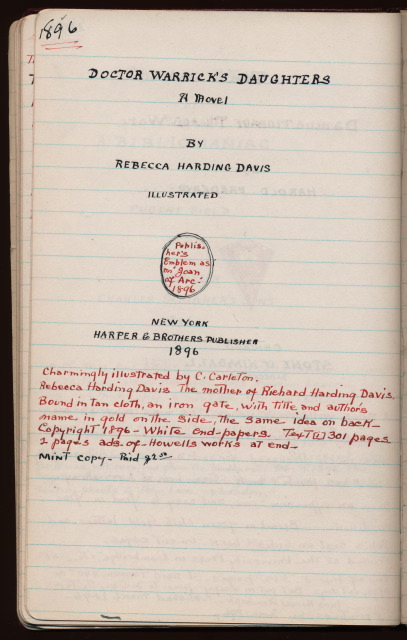 1896
DOCTOR WARRICK'S DAUGHTERS
A Novel
BY
REBECCA HARDING DAVIS
ILLUSTRATED
Publis-
her's
Emblem as
on "Joan
of Arc."
1896
NEW YORK
HARPER & BROTHERS PUBLISHER
1896
Charmingly illustrated by C. Carleton.
Rebecca Harding Davis The mother of Richard Harding Davis.
Bound in tan cloth, an iron gate, with title and author's
name in gold on the side, the same idea on back-
Copyright 1896 - White end-papers. Text [1] 301 pages
2 pages ads-of-Howells works at end-
Mint copy- Paid $2.50